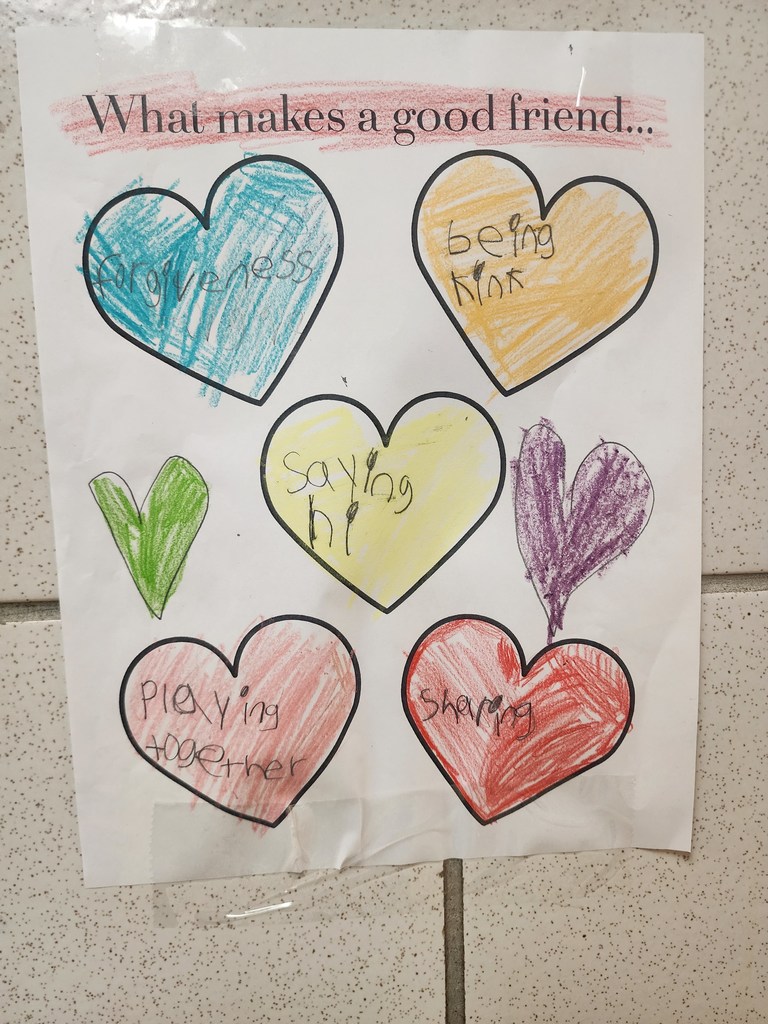 What makes a good friend...
forgiveness
being
kink
saying
hi
playing
together
sharing